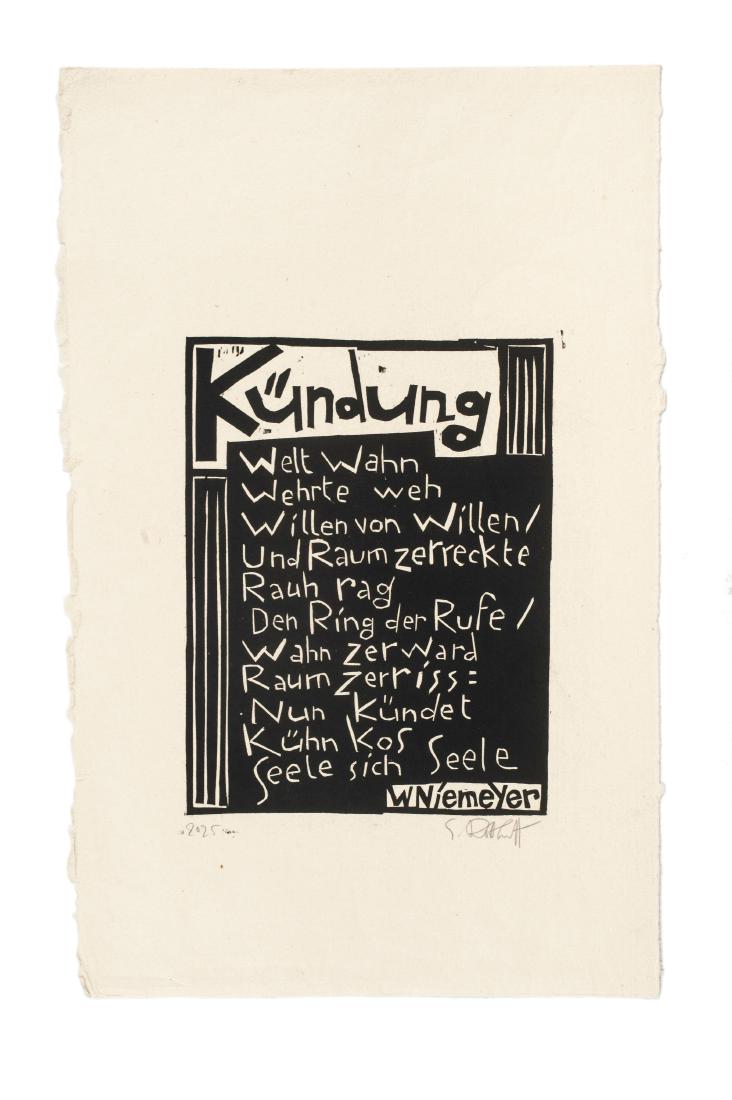 Kündung
Welt Wahn
Wehrte weh
Willen von Willen/
Und Raum zerreckte
Rauh rag
Den Ring der Rufe /
Wahn zerward
Raum zerriss:
Nun kündet
Kühn Kos
Seele sich Seele
WNiemeyer
2025